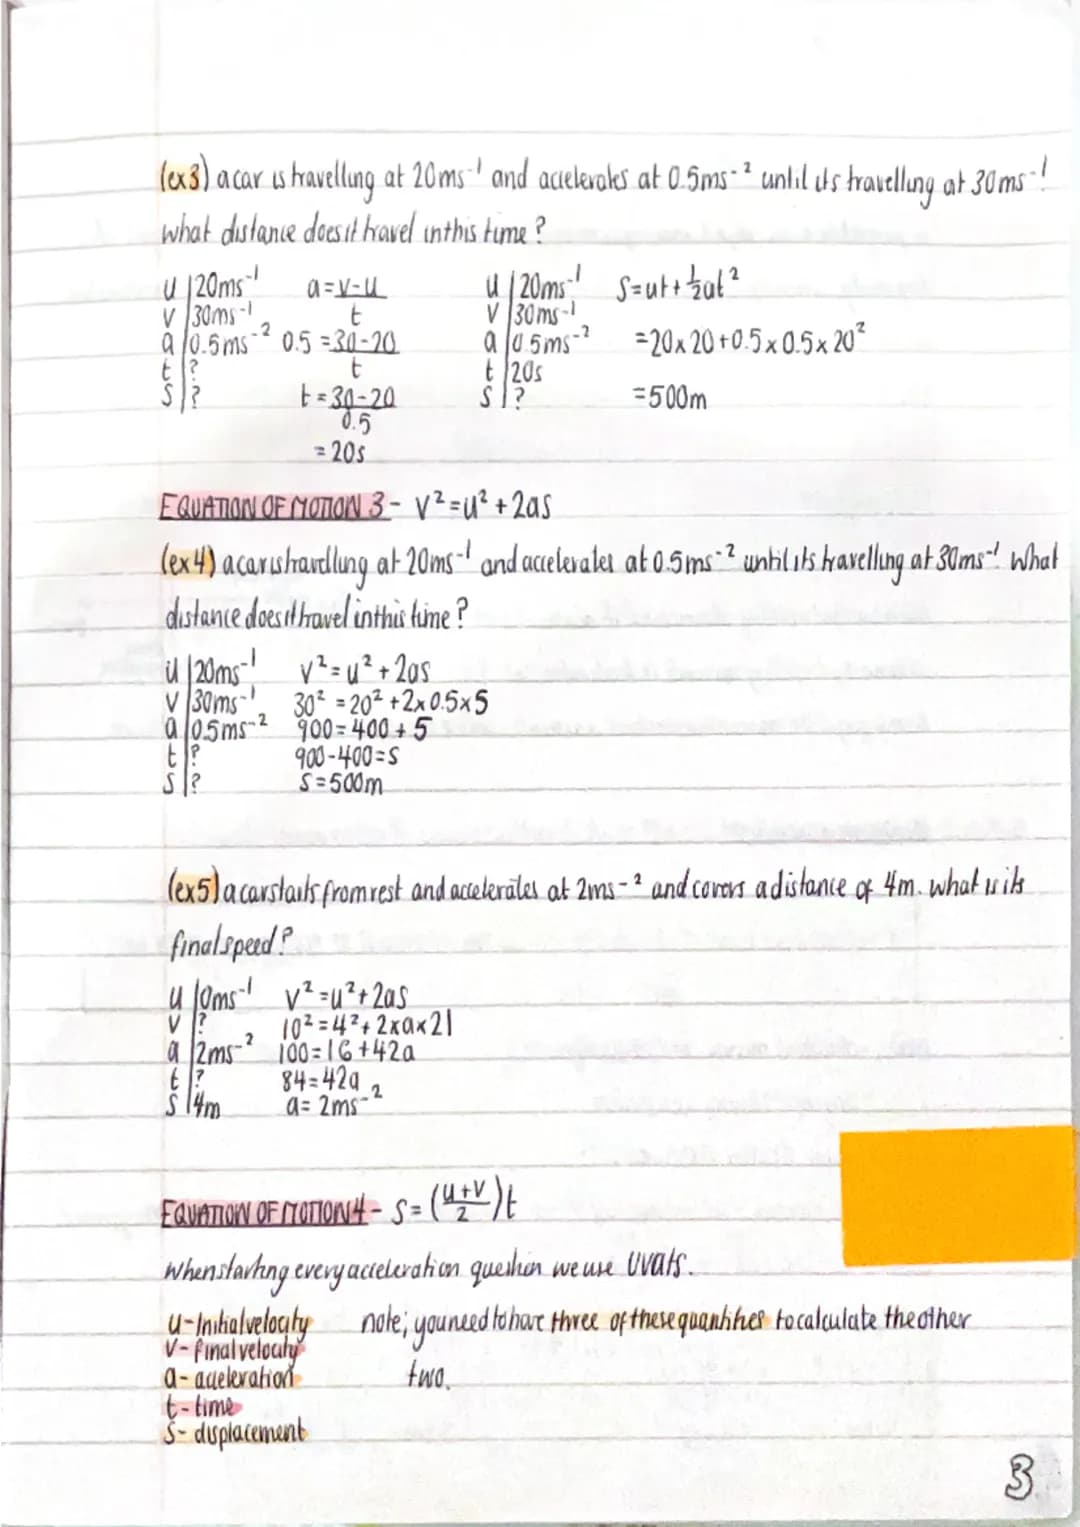 (ex3) a car is travelling at 20ms⁻¹ and accelerates at 0.5ms⁻² until its travelling at 30ms⁻¹.
what distance does it travel in this time?
u | 20ms⁻¹   a = v-u / t   u | 20ms⁻¹   S=ut+½at²
v | 30ms⁻¹   v | 30ms⁻¹
a | 0.5ms⁻²   0.5 = 30-20 / t   a | 0.5ms⁻²   =20x20+0.5x0.5x20²
t | ?   t | 20s
s | ?   t = 30-20 / 0.5   s | ?   =500m
= 20s
EQUATION OF MOTION 3 - v²=u²+2as
(ex4) a car is travelling at 20ms⁻¹ and accelerates at 0.5ms⁻² until its travelling at 30ms⁻¹. What
distance does it travel in this time?
u | 20ms⁻¹   v²=u²+2as
v | 30ms⁻¹   30² = 20²+2x0.5xS
a | 0.5ms⁻²   900=400+S
t | ?   900-400=S
s | ?   S=500m
(ex5) a car starts from rest and accelerates at 2ms⁻² and covers a distance of 4m. what is its
final speed?
u | 0ms⁻¹   v²=u²+2as
v | ?   10²=4²+2xax21
a | 2ms⁻²   100=16+42a
t | ?   84=42a
s | 4m   a=2ms⁻²
EQUATION OF MOTION 4 - S=(u+v/2)t
When starting every acceleration question we use UVATS.
u-Initial velocity   note; you need to have three of these quantities to calculate the other
v-final velocity
a-acceleration   two.
t-time
s-displacement
3